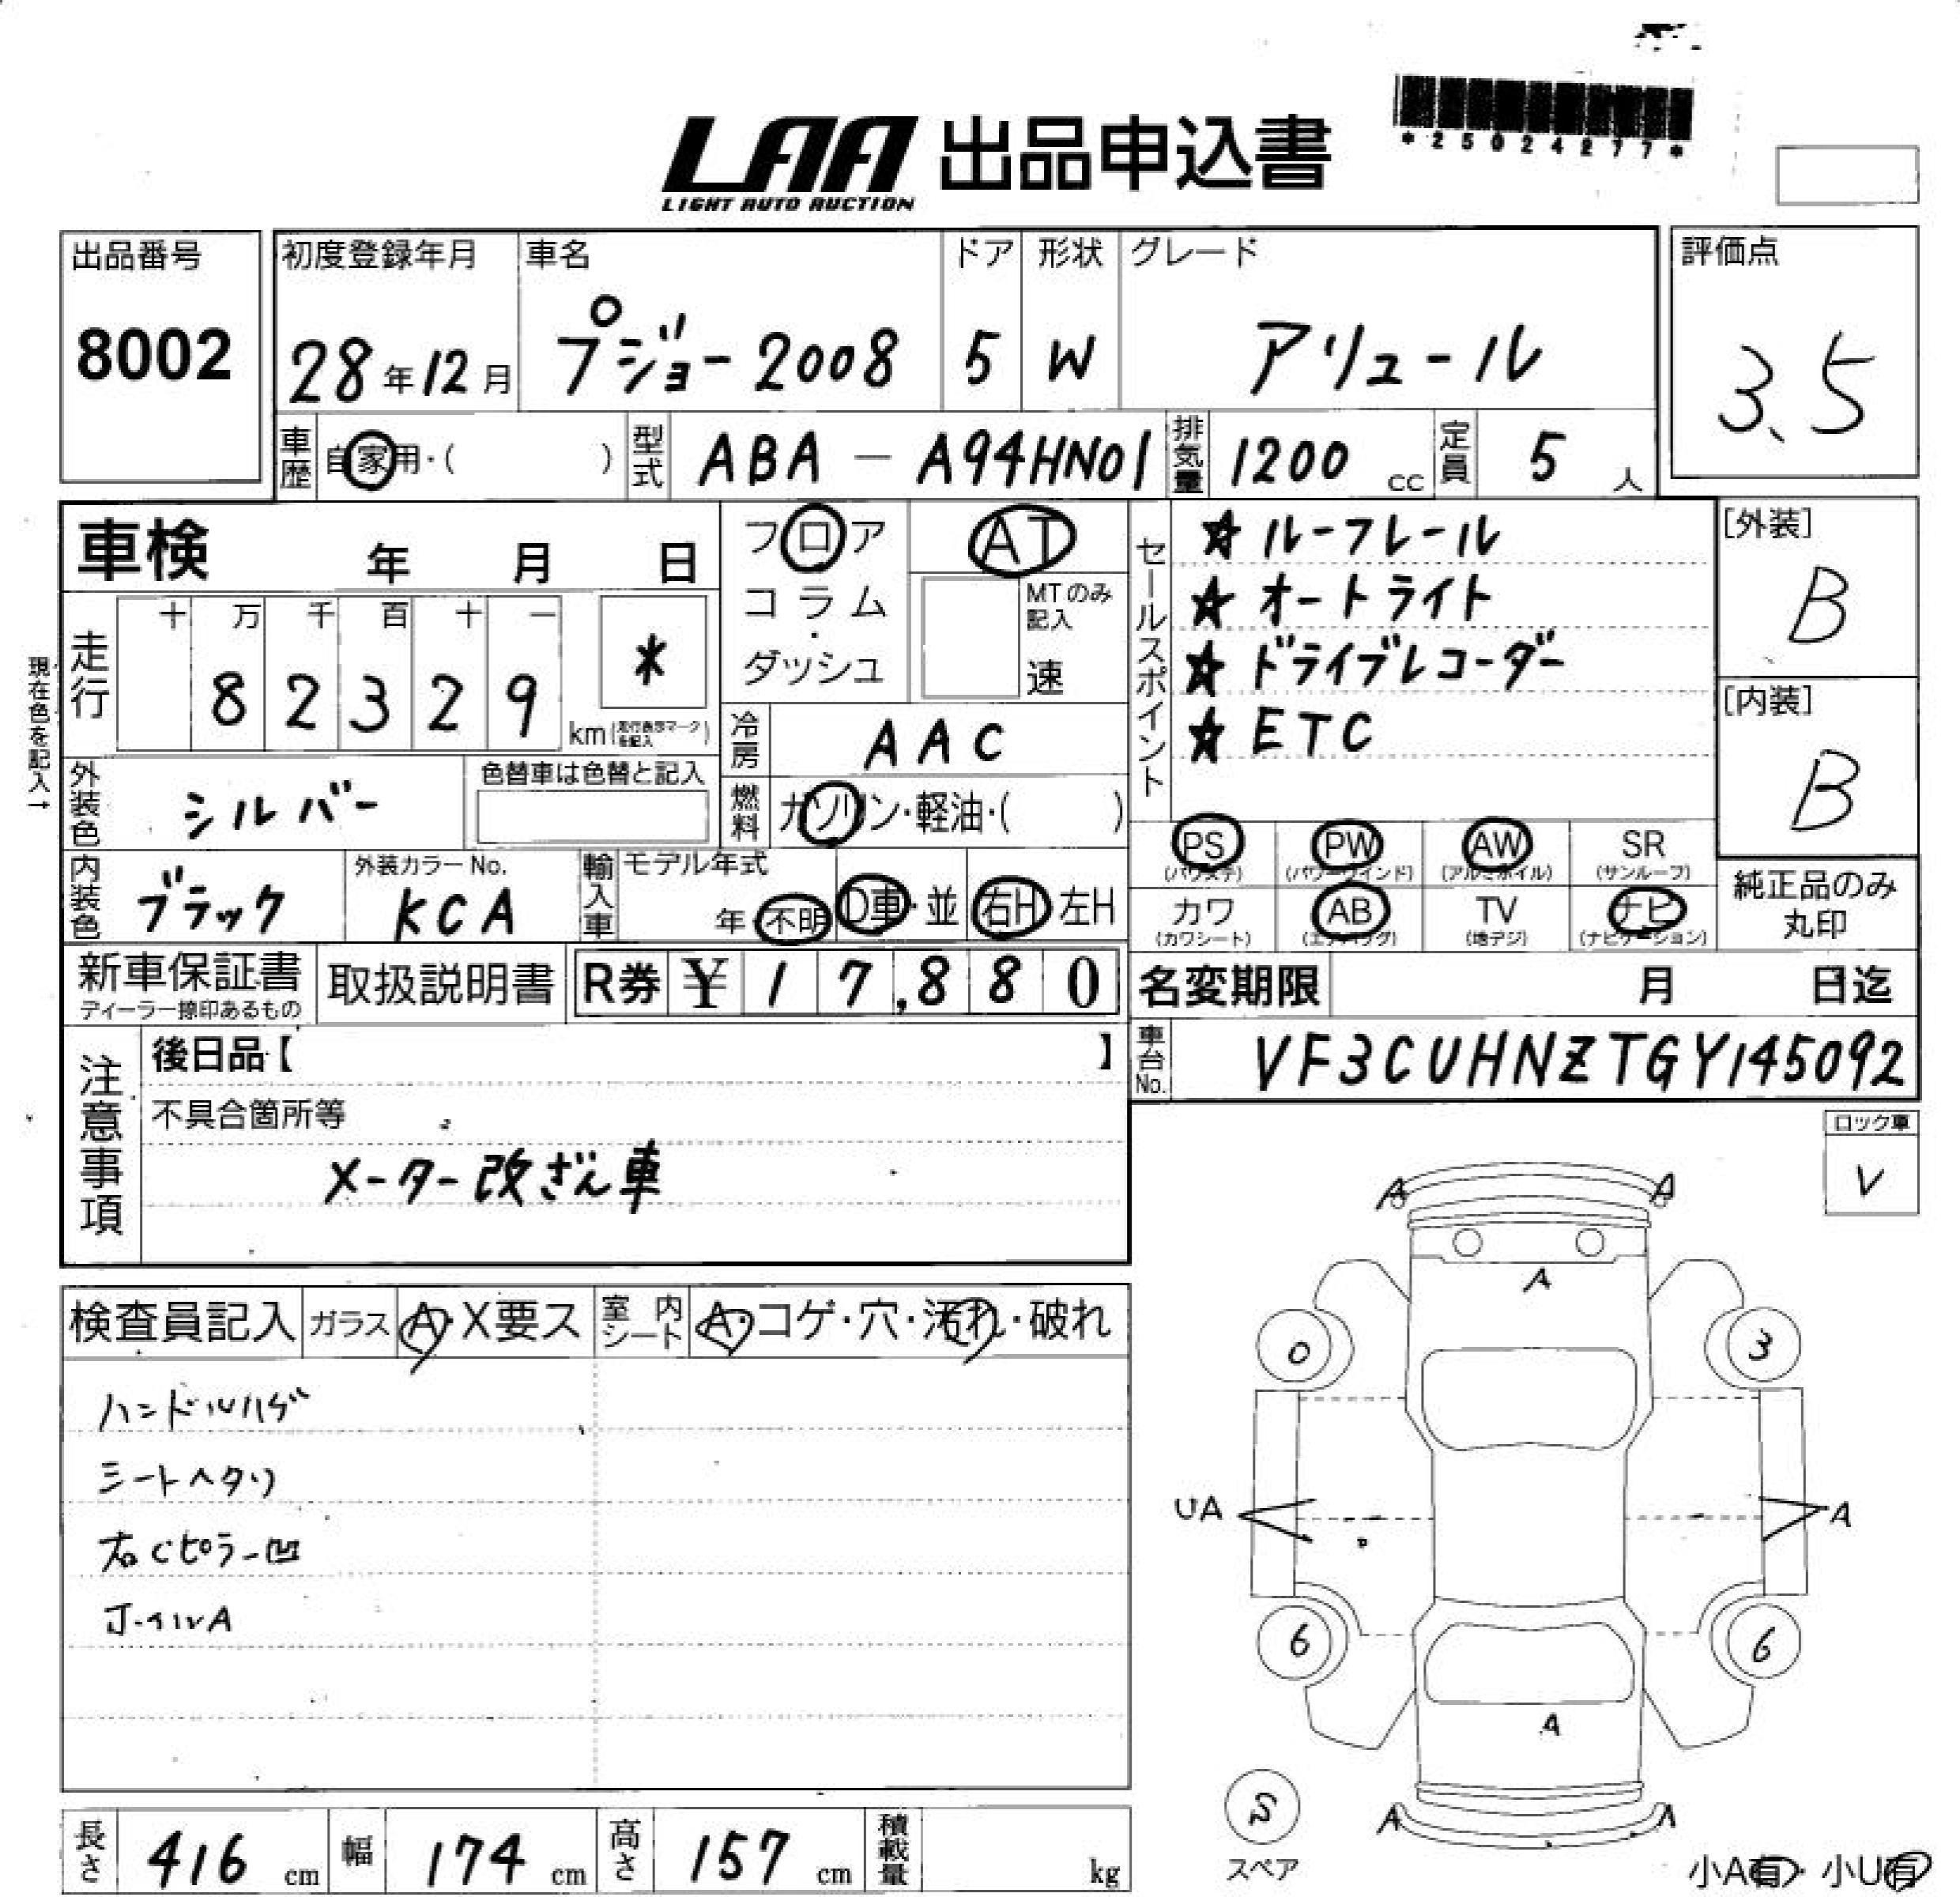 *25024277*
LAA 出品申込書
LIGHT AUTO AUCTION
出品番号
8002
初度登録年月
28年12月
車名
プジョー2008
ドア
5
形状
W
グレード
アリュール
評価点
3.5
車歴
自家用・( )
型式
ABA - A94HN01
排気量
1200 cc
定員
5 人
車検 年 月 日
フロア
コラム
・
ダッシュ
AT
MTのみ記入
速
セールスポイント
☆ ルーフレール
☆ オートライト
☆ ドライブレコーダー
☆ ETC
[外装]
B
[内装]
B
現在色を記入→
走行
十 万 千 百 十 一
8 2 3 2 9
*
km(走行表示マークを記入)
冷房
AAC
外装色
シルバー
色替車は色替と記入
燃料
ガソリン・軽油・( )
PS
(パワステ)
PW
(パワーウインド)
AW
(アルミホイル)
SR
(サンルーフ)
内装色
ブラック
外装カラーNo.
KCA
輸入車
モデル年式
年・不明
D車・並
右H 左H
カワ
(カワシート)
AB
(エアバッグ)
TV
(地デジ)
ナビ
(ナビゲーション)
純正品のみ
丸印
新車保証書
ディーラー捺印あるもの
取扱説明書
R券 ¥ 17,880
名変期限 月 日迄
注意事項
後日品【 】
車台No.
VF3CUHNZTGY145092
不具合箇所等
メーター改ざん車
ロック車
V
A A
A
0 3
UA A
6 6
A
A A
S
スペア
小A有・小U有
検査員記入
ガラス
A・X要ス
室内シート
A・コゲ・穴・汚れ・破れ
ハンドルハゲ
シートヘタリ
右Cピラー凹
ホイルA
長さ
416 cm
幅
174 cm
高さ
157 cm
積載量
kg